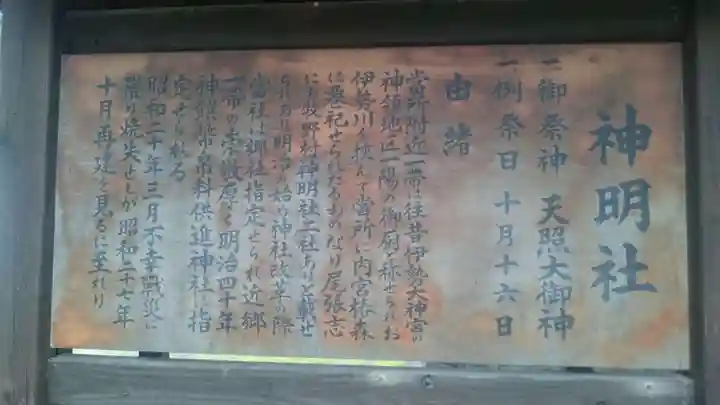 神明社
一御祭神 天照大御神
一例祭日 十月十六日
由緒
当所附近一帯は往昔伊勢大神宮の
神領地にて一陽の御厨と称せられお
伊勢川を挟んで当所に内宮椿森
に
に牧野村神明社二社ありと載せ
られあり明治の始め神社改革の際
当社は郷社に指定せられ近郷
一帯の崇敬厚く明治四十年
神饌幣帛料供進神社に指
定せられる
昭和二十年三月不幸戦災に
罹り焼失せしが昭和二十七年
十月再建を見るに至れり